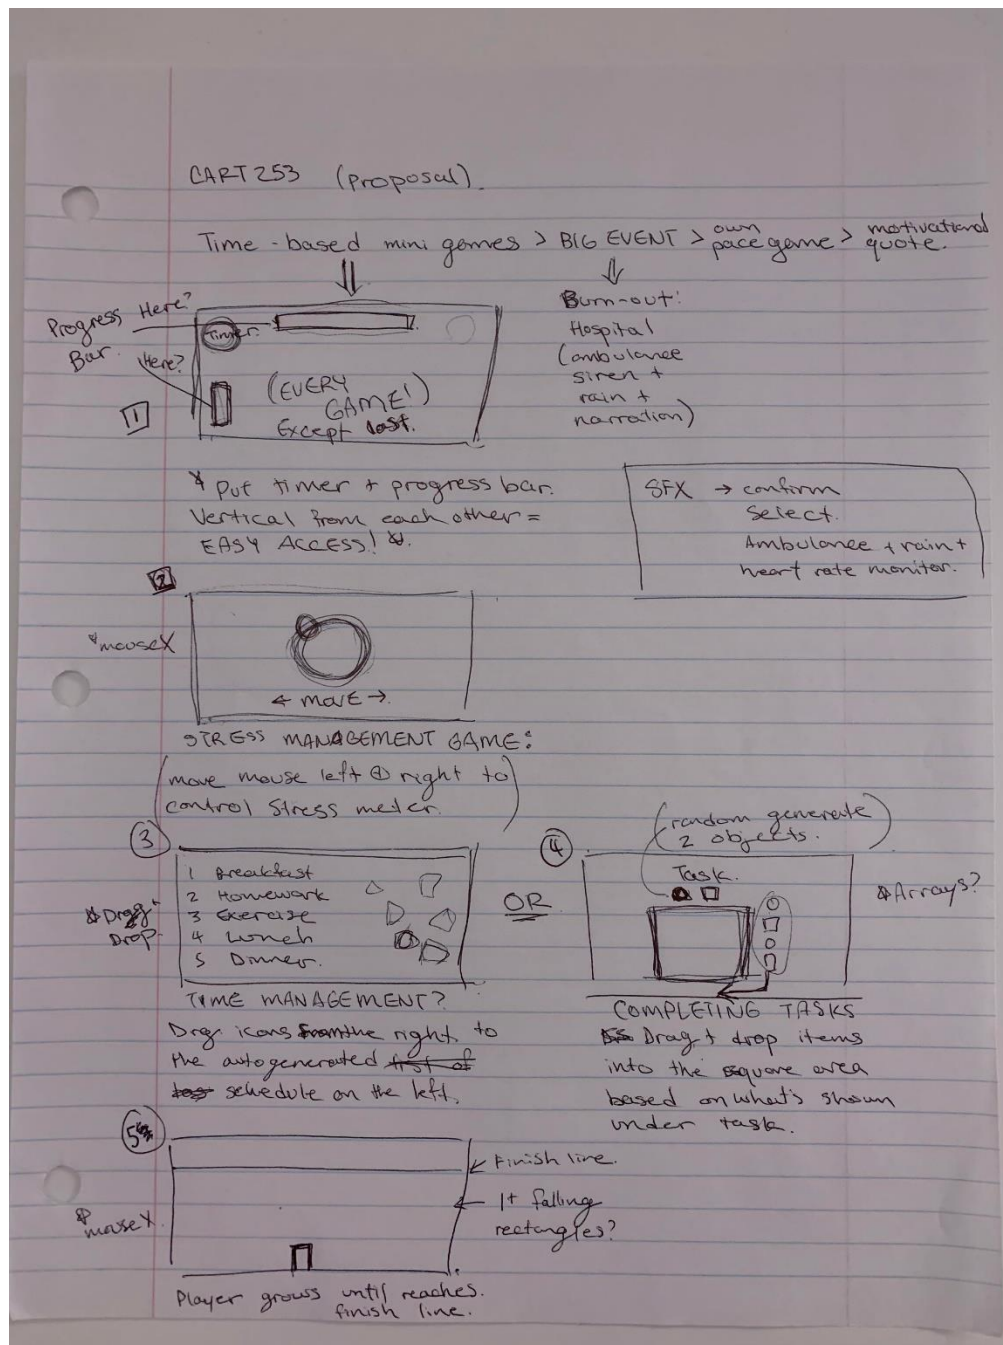 CART 253 (proposal).
Time-based mini games > BIG EVENT > own pace game > motivational quote.
Progress Bar.
Here?
Here?
Timer.
1
(EVERY
GAME!)
Except last.
Burn-out:
Hospital
(ambulance
siren +
rain +
narration)
* Put timer + progress bar.
Vertical from each other =
EASY ACCESS! *.
SFX → confirm
Select.
Ambulance + rain +
heart rate monitor.
2
*mouseX
← MOVE →.
STRESS MANAGEMENT GAME:
(move mouse left + right to
control stress meter.)
3
1 Breakfast
2 Homework
3 Exercise
4 Lunch
5 Dinner.
*Drag +
Drop
TIME MANAGEMENT?
Drag icons from the right to
the autogenerated
schedule on the left.
OR
4
(random generate
2 objects.)
Task.
*Arrays?
COMPLETING TASKS
Drag + drop items
into the square area
based on what's shown
under task.
5
← Finish line.
← 1+ falling
rectangles?
*mouseX
Player grows until reaches.
finish line.